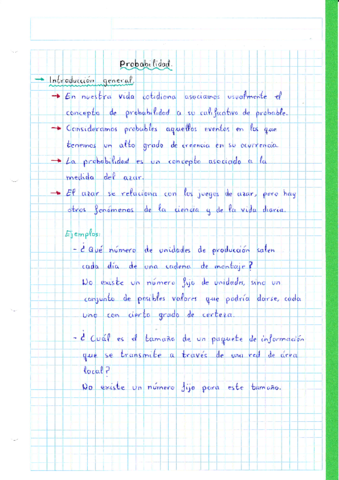 Probabilidad
→ Introducción general.
→ En nuestra vida cotidiana asociamos usualmente el
concepto de probabilidad a su calificativo de probable.
→ Consideramos probables aquellos eventos en los que
tenemos un alto grado de creencia en su ocurrencia.
→ La probabilidad es un concepto asociado a la
medida del azar.
→ El azar se relaciona con los juegos de azar, pero hay
otros fenómenos de la ciencia y de la vida diaria.
Ejemplos:
- ¿Qué número de unidades de producción salen
cada día de una cadena de montaje?
No existe un número fijo de unidades, sino un
conjunto de posibles valores que podría darse, cada
uno con cierto grado de certeza.
- ¿Cuál es el tamaño de un paquete de información
que se transmite a través de una red de área
local?
No existe un número fijo para este tamaño.